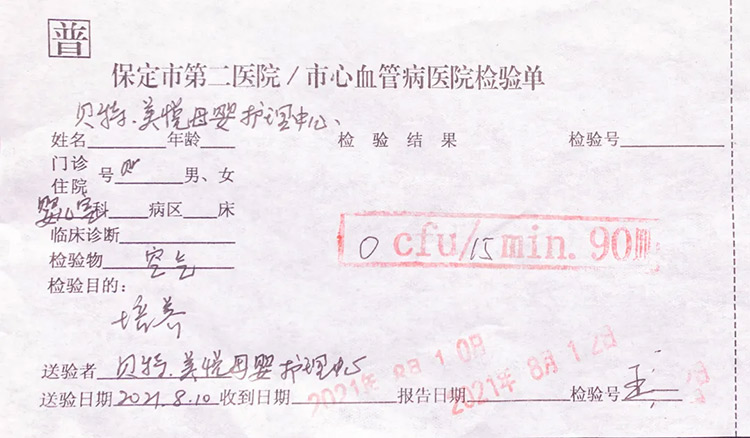 普
保定市第二医院/市心血管病医院检验单
贝特·美悦母婴护理中心
姓名 年龄 检验结果 检验号
门诊
住院 号 男、女
婴儿室科 病区 床
临床诊断
0 cfu/15min.90
检验物 空气
检验目的:
培养
送验者 贝特·美悦母婴护理中心
送验日期2021.8.10 收到日期 2021年8月10日 报告日期 2021年8月12日 检验号